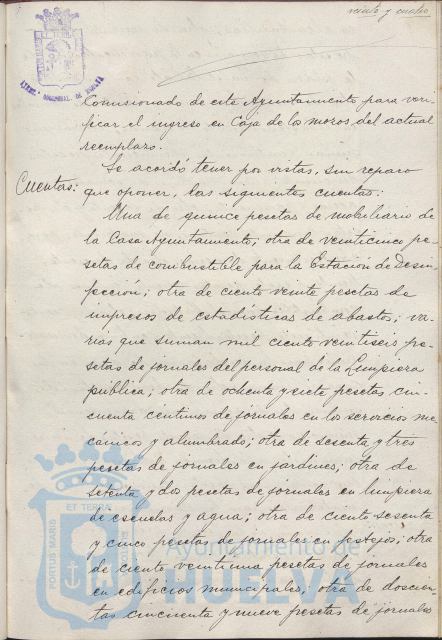 veinte y cuatro
PORTUS MARIS
ET TERRÆ
AYTMO. MUNICIPAL DE HUELVA
Comisionado de este Ayuntamiento para veri-
ficar el ingreso en Caja de los mozos del actual
reemplazo.
Se acordó tener por vistas, sin reparo
Cuentas:
que oponer, las siguientes cuentas:
Una de quince pesetas de mobiliario de
la Casa Ayuntamiento; otra de veinticinco pe-
setas de combustible para la Estación de Desin-
fección; otra de ciento veinte pesetas de
impresos de estadísticas de abastos; va-
rias que suman mil ciento veintiseis pe-
setas de jornales del personal de la Limpieza
pública; otra de ochenta y siete pesetas cin-
cuenta céntimos de jornales en los servicios me-
cánicos y alumbrado; otra de sesenta y tres
pesetas de jornales en jardines; otra de
setenta y dos pesetas de jornales en limpieza
de escuelas y agua; otra de ciento sesenta
y cinco pesetas de jornales en festejos; otra
de ciento veintiuna pesetas de jornales
en edificios municipales; otra de doscien-
tas cincuenta y nueve pesetas de jornales
PORTUS MARIS
ET TERRÆ
Ayuntamiento de
HUELVA